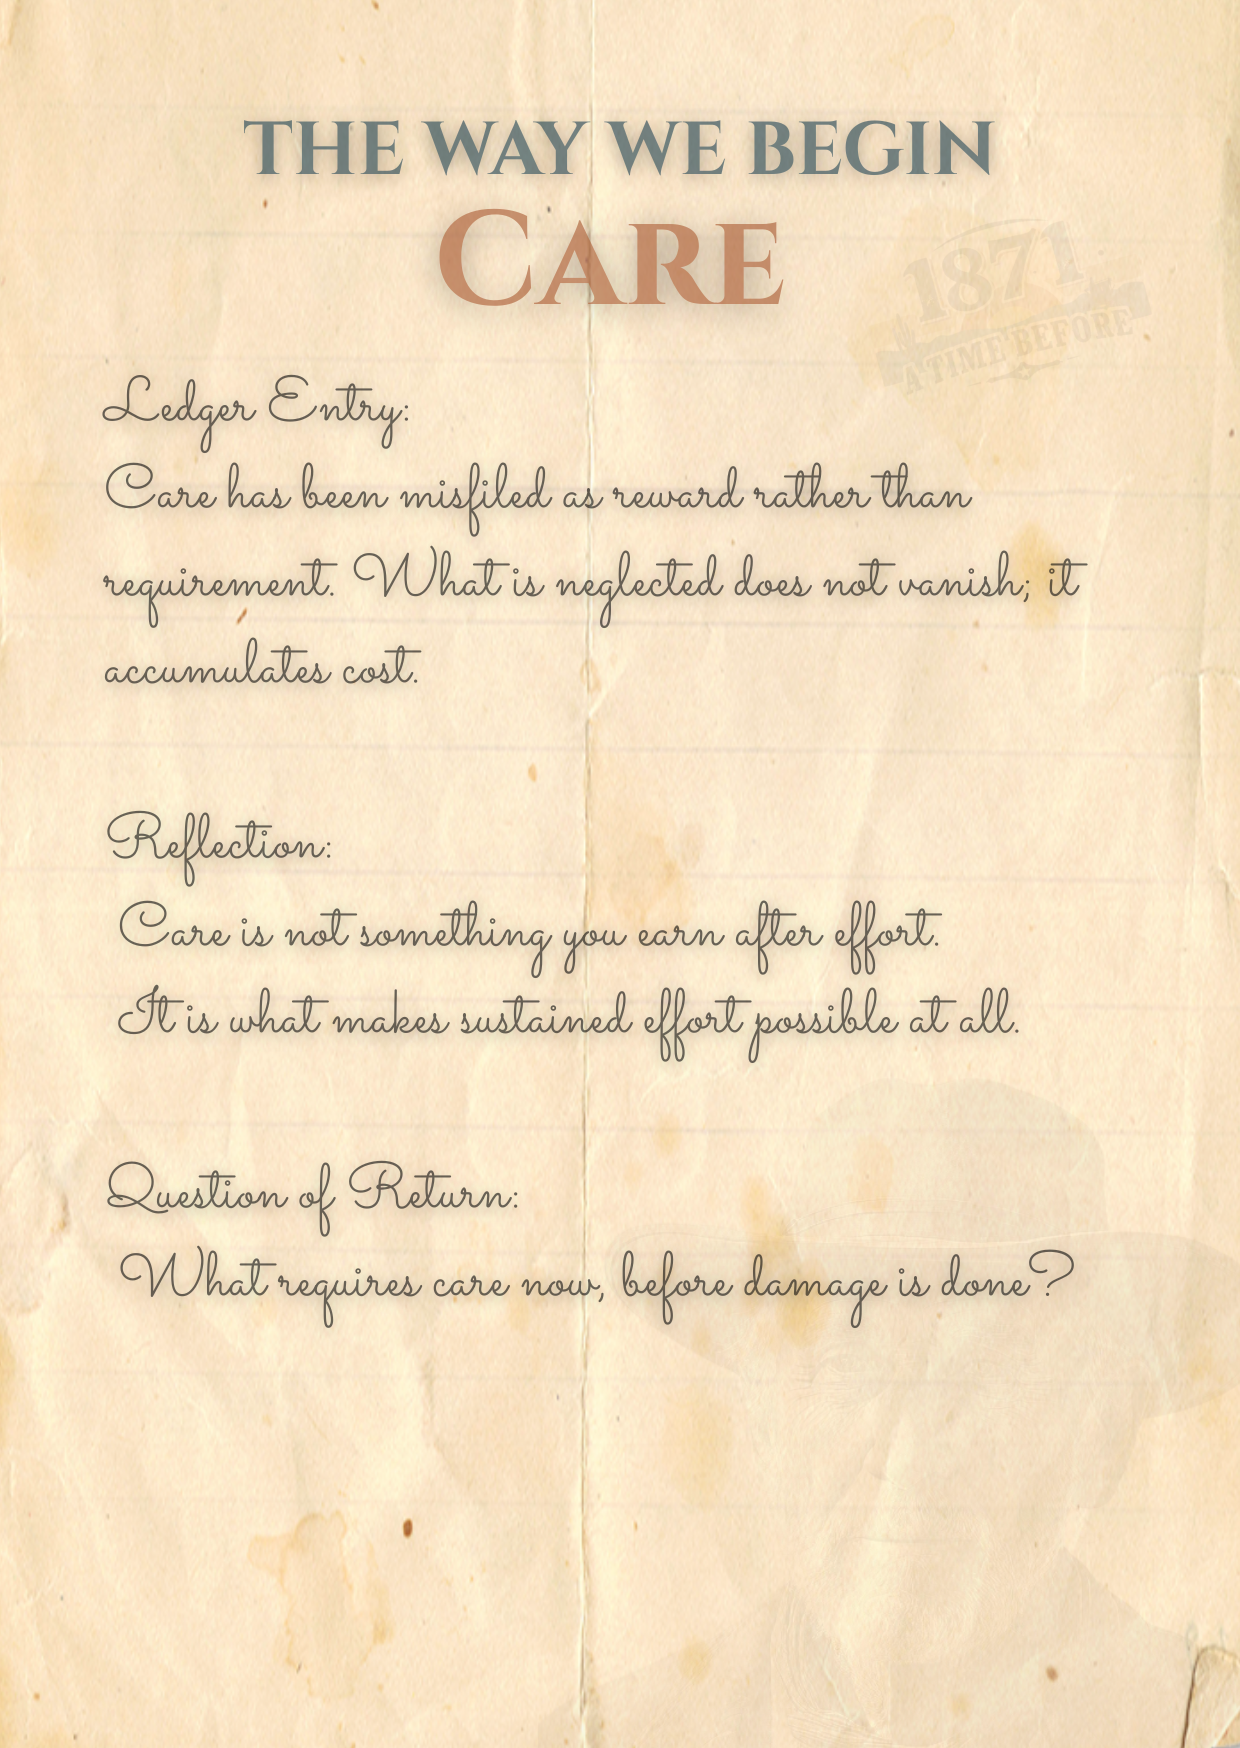 THE WAY WE BEGIN
CARE
1871
A TIME BEFORE
Ledger Entry:
Care has been misfiled as reward rather than
requirement. What is neglected does not vanish; it
accumulates cost.
Reflection:
Care is not something you earn after effort.
It is what makes sustained effort possible at all.
Question of Return:
What requires care now, before damage is done?